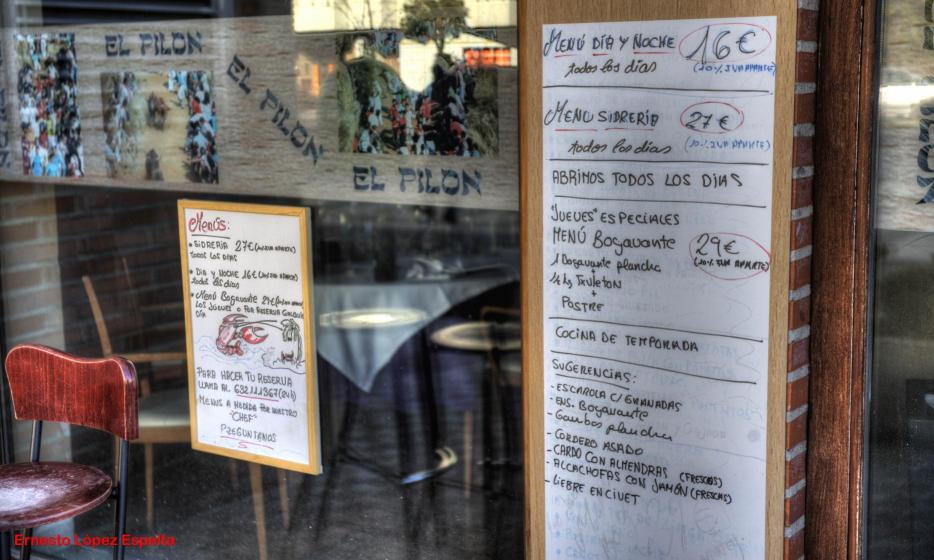 EL PILON
EL PILON
EL PILON
Menús:
• SIDRERÍA 27€ (10% IVA APARTE)
TODOS LOS DIAS
• DIA Y NOCHE 16€ (10% IVA APARTE)
todos los dias
• Menú Bogavante 29€ (10% IVA APARTE)
LOS JUEVES O POR RESERVA CUALQUIER
DÍA
PARA HACER TU RESERVA
LLAMA AL
MENUS A MEDIDA POR NUESTRO
"CHEF"
PREGUNTANOS
MENÚ DÍA Y NOCHE 16€
todos los días (10% IVA APARTE)
MENU SIDRERÍA 27€
todos los días (10% IVA APARTE)
ABRIMOS TODOS LOS DIAS
"JUEVES" ESPECIALES
MENÚ Bogavante 29€
1 Bogavante plancha (10% IVA APARTE)
+
½ kg TXULETON
+
POSTRE
COCINA DE TEMPORADA
SUGERENCIAS:
- ESCAROLA C/ GRANADAS
- ENS. Bogavante
- Gambas plancha
- CORDERO ASADO
- CARDO CON ALMENDRAS (FRESCOS)
- ALCACHOFAS CON JAMÓN (FRESCAS)
- LIEBRE EN CIVET
Ernesto López Espelta